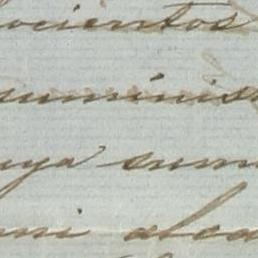 ocientos
suminis
uya suma
mi alca